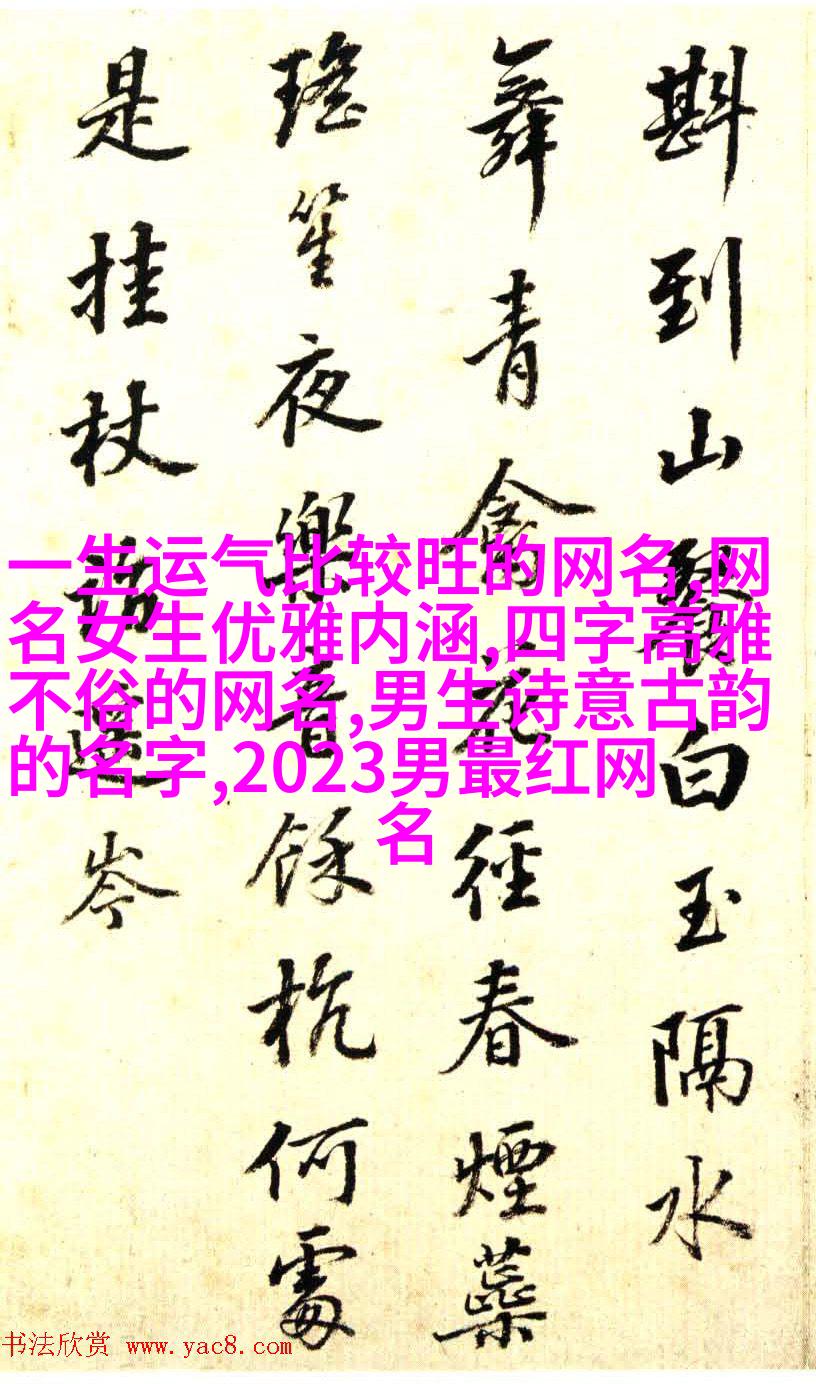 斟到山白玉隔水
舞青禽花徑春煙蘂
瑤笙夜樂音餘杭何處
是挂杖岑
一生运气比较旺的网名,网
名女生优雅内涵,四字高雅
不俗的网名,男生诗意古韵
的名字,2023男最红网
名
书法欣赏 www.yac8.com